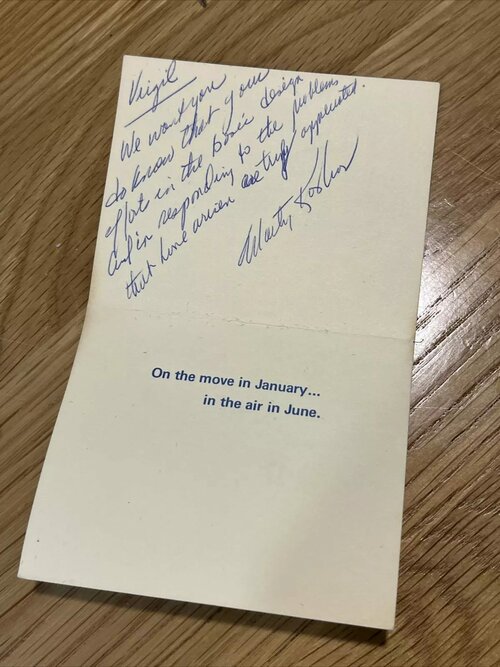 Virgil
We want you
to know that your
effort in the basic design
and in responding to the problems
that have arisen are truly appreciated.
Marty
On the move in January...
in the air in June.